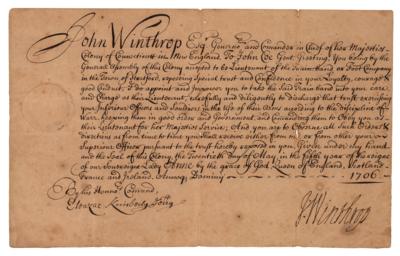 John Winthrop Esq. Governr. and Comander in Chief of her Majesties
Colony of Connecticutt in New England. To John Coe Gent. Greeting. You being by the
Generall Assembly of this Colony accepted to be Lieutenant of the Trainband or Foot Company
in the Town of Stratford, reposing special trust and Confidence in your Loyalty, courage &
good Conduct, I do appoint and Impower you to take the said Train band into your care
and Charge as their Lieutenant, carefully and diligently to discharge that trust, exercising
your Inferiour Officers and Souldiers in the Use of their Arms according to the discipline of
War, keeping them in good order and Government and Comanding them to Obey you as
their Lieutenant for her Majesties Service, And you are to Observe all such Orders &
directions as from time to time you shall receive either from me or from other your
Superiour Officer pursuant to the trust hereby reposed in you. Given under my hand
and the Seal of this Colony, the Twentieth day of May, in the fifth year of the reign
of our Soveraign Lady Anne by the grace of God Queen of England, Scotland
France and Ireland. Annoq. Domini 1706.
By his Honrs. Comand,
Eleazar Kimberly Secry.
J: Winthrop